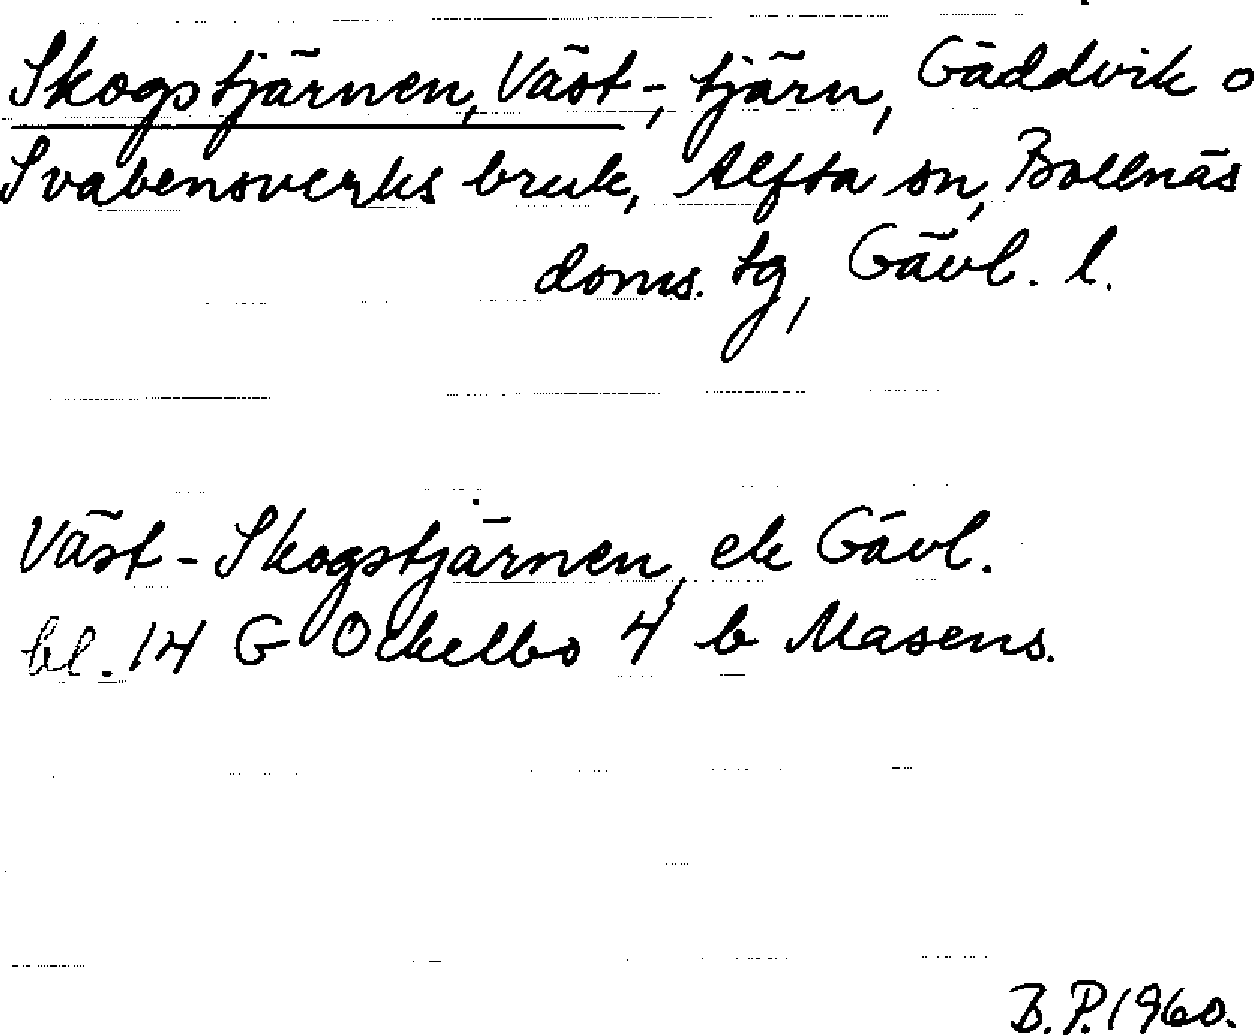 Skogstjärnen, Väst-, tjärn, Gäddvik o
Svabensverks bruk, Alfta sn, Bollnäs
doms. tg, Gävl. l.
Väst-Skogstjärnen, ek Gävl.
bl. 14 G Ockelbo 4 b Masens.
B.P. 1960.